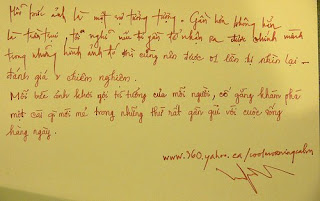 Mỗi bức ảnh là một sự tưởng tượng. Gần hơn không hẳn
là tiến tới, tôi nghĩ nếu từ gần tự nhận ra được chính mình
trong những hình ảnh đó thì cũng nên được 1 lần tự nhìn lại -
đánh giá & chiêm nghiệm.
Mỗi bức ảnh khơi gợi tư tưởng của mỗi người, cố gắng khám phá
một cái gì mới mẻ trong những thứ rất gần gũi với cuộc sống
hàng ngày.
www.360.yahoo.ca/coolmorningcalm